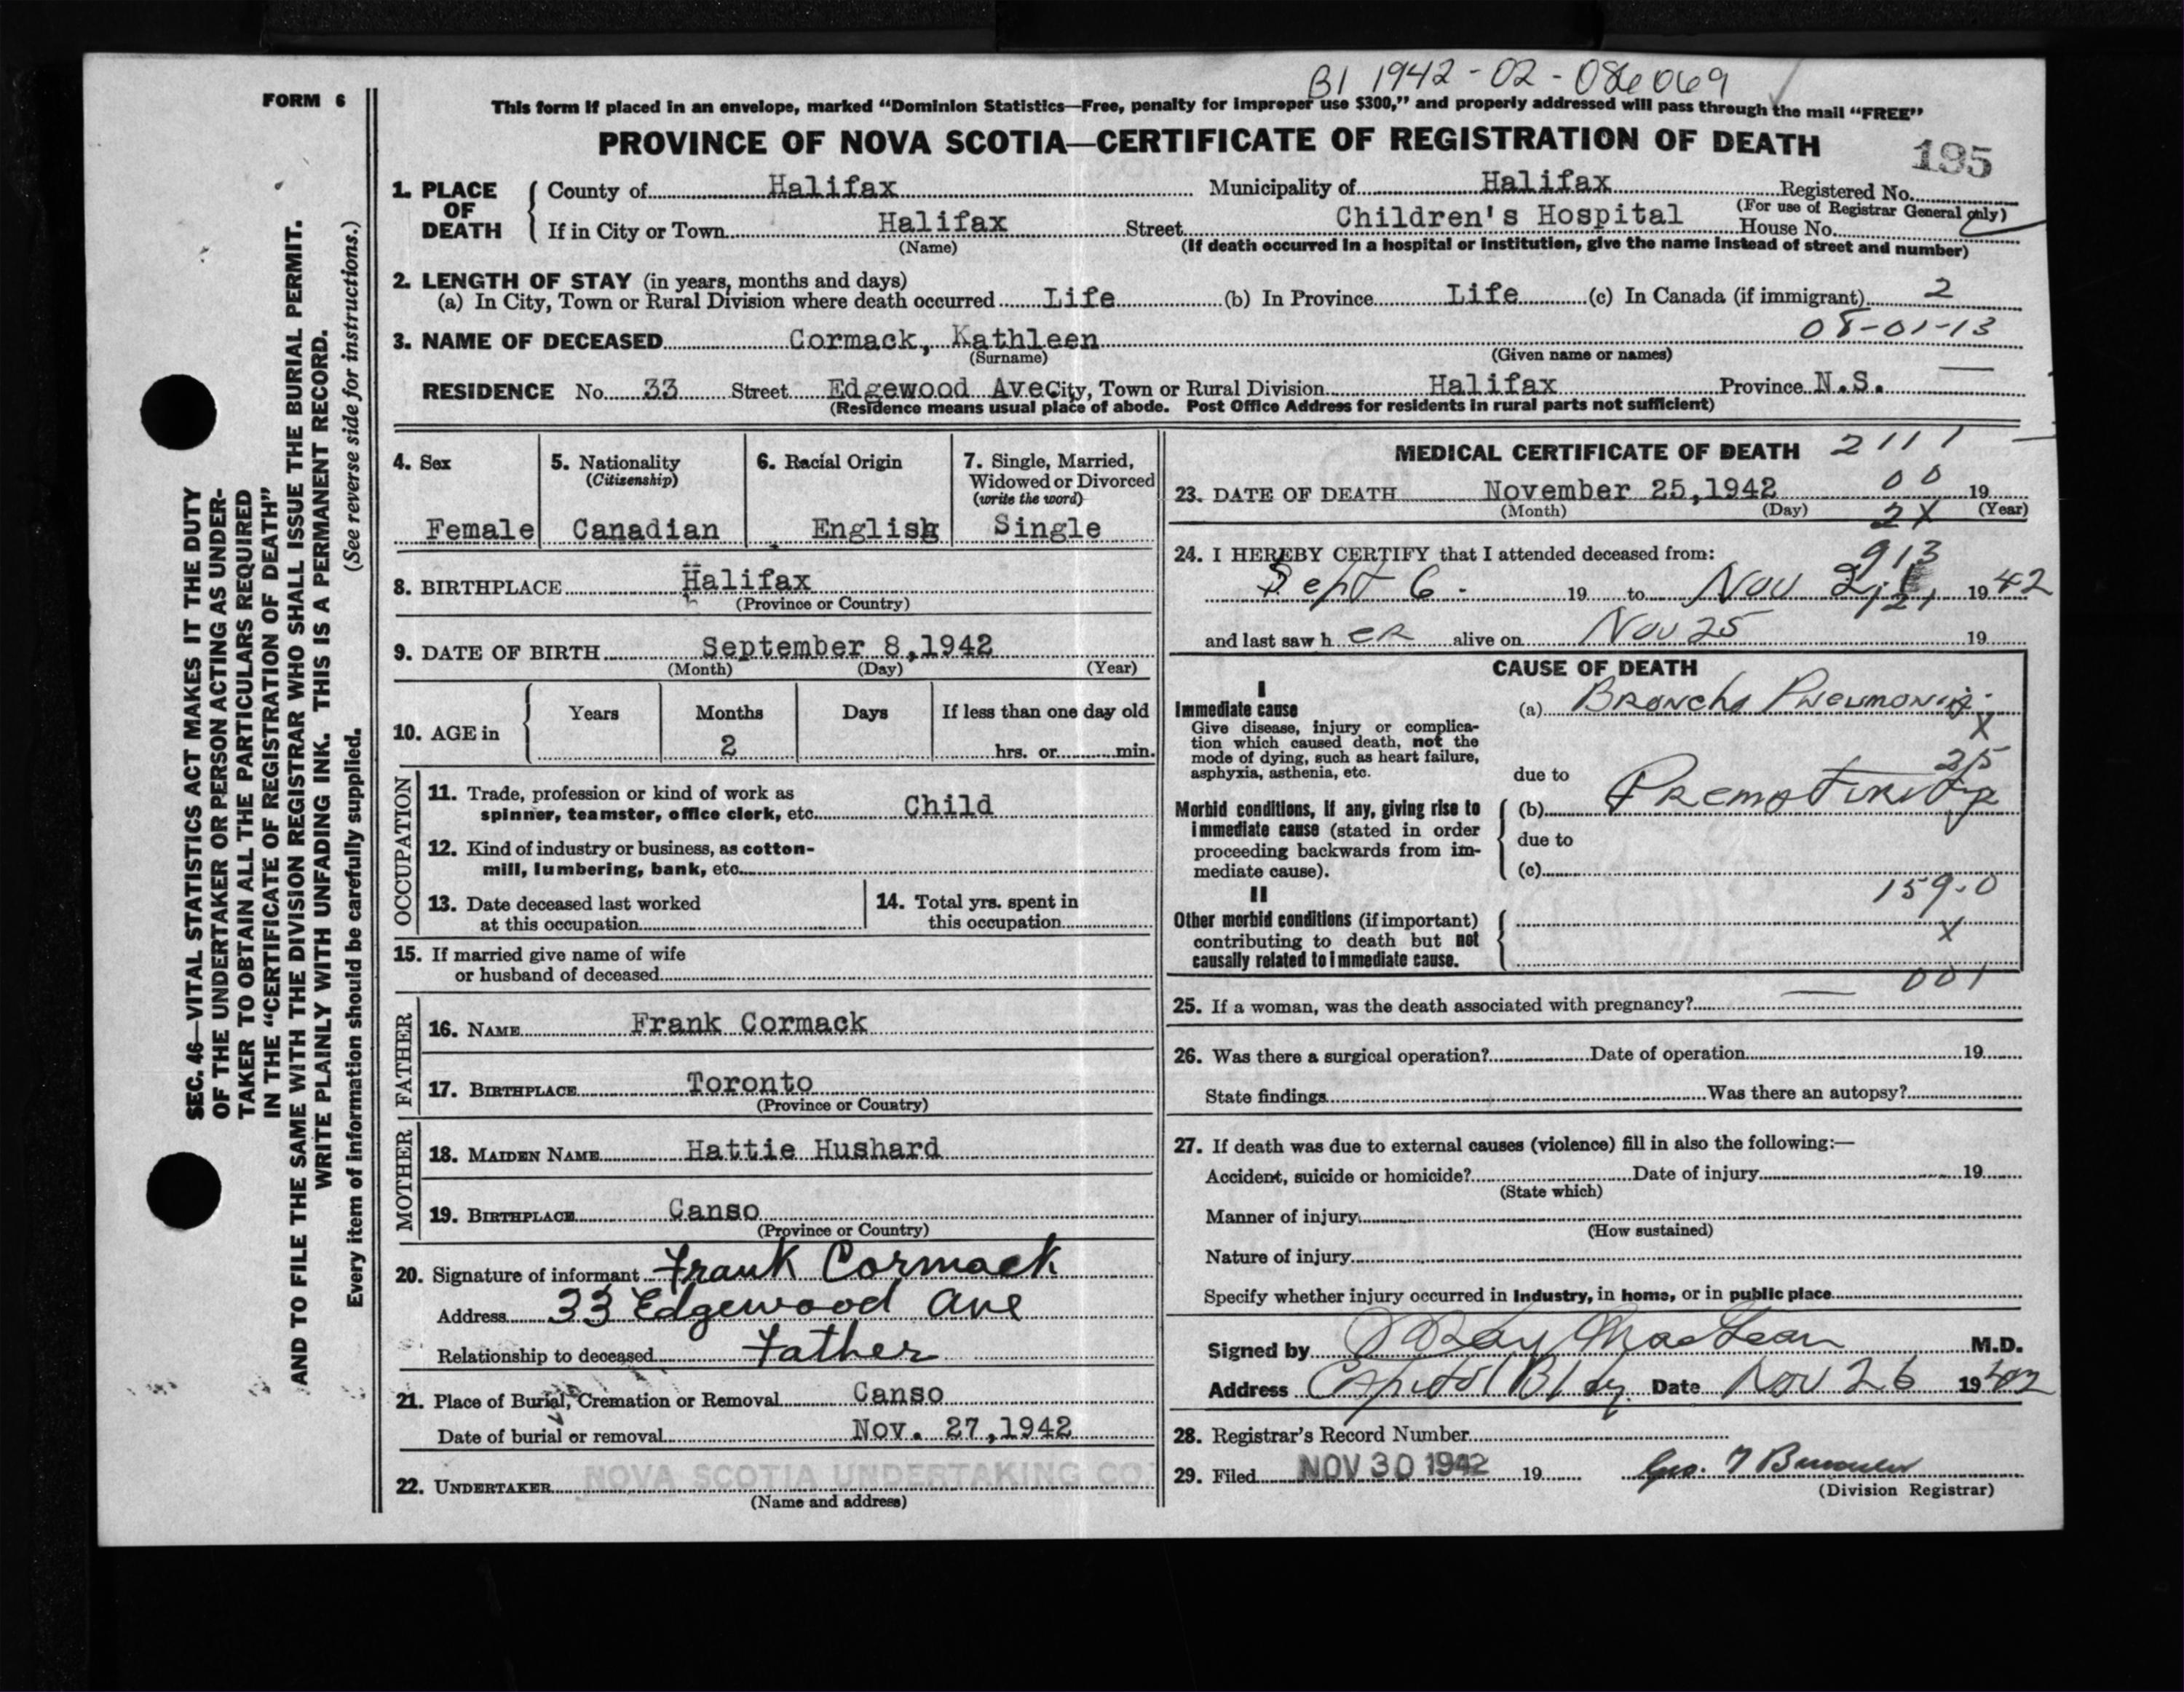 BI 1942-02-086069
FORM 6
This form if placed in an envelope, marked “Dominion Statistics—Free, penalty for improper use $300,” and properly addressed will pass through the mail “FREE”
PROVINCE OF NOVA SCOTIA—CERTIFICATE OF REGISTRATION OF DEATH
195
1. PLACE OF DEATH
County of Halifax Municipality of Halifax Registered No.
(For use of Registrar General only)
If in City or Town Halifax Street Children's Hospital House No.
(Name) (If death occurred in a hospital or institution, give the name instead of street and number)
2. LENGTH OF STAY (in years, months and days)
(a) In City, Town or Rural Division where death occurred Life (b) In Province Life (c) In Canada (if immigrant) 2
08-01-13
3. NAME OF DECEASED Cormack, Kathleen
(Surname) (Given name or names)
RESIDENCE No. 33 Street Edgewood Ave City, Town or Rural Division Halifax Province N.S.
(Residence means usual place of abode. Post Office Address for residents in rural parts not sufficient)
4. Sex
Female
5. Nationality
(Citizenship)
Canadian
6. Racial Origin
English
7. Single, Married,
Widowed or Divorced
(write the word)
Single
8. BIRTHPLACE Halifax
(Province or Country)
9. DATE OF BIRTH September 8, 1942
(Month) (Day) (Year)
10. AGE in
Years Months Days If less than one day old
2 hrs. or min.
OCCUPATION
11. Trade, profession or kind of work as
spinner, teamster, office clerk, etc. Child
12. Kind of industry or business, as cotton-
mill, lumbering, bank, etc.
13. Date deceased last worked
at this occupation
14. Total yrs. spent in
this occupation
15. If married give name of wife
or husband of deceased
FATHER
16. NAME Frank Cormack
17. BIRTHPLACE Toronto
(Province or Country)
MOTHER
18. MAIDEN NAME Hattie Hushard
19. BIRTHPLACE Canso
(Province or Country)
20. Signature of informant Frank Cormack
Address 33 Edgewood Ave
Relationship to deceased Father
21. Place of Burial, Cremation or Removal Canso
Date of burial or removal Nov. 27, 1942
22. UNDERTAKER NOVA SCOTIA UNDERTAKING CO.
(Name and address)
MEDICAL CERTIFICATE OF DEATH 2111
23. DATE OF DEATH November 25, 1942 00 19
(Month) (Day) 2X (Year)
24. I HEREBY CERTIFY that I attended deceased from:
913
Sept 6 19 to Nov 19 42
and last saw h er alive on Nov 25 19
CAUSE OF DEATH
I
Immediate cause
Give disease, injury or complica-
tion which caused death, not the
mode of dying, such as heart failure,
asphyxia, asthenia, etc.
(a) Broncho Pneumonia
X
25
due to
Morbid conditions, if any, giving rise to
immediate cause (stated in order
proceeding backwards from im-
mediate cause).
(b) Prematurity
due to
(c)
159.0
II
Other morbid conditions (if important)
contributing to death but not
causally related to immediate cause.
X
001
25. If a woman, was the death associated with pregnancy?
26. Was there a surgical operation? Date of operation 19
State findings Was there an autopsy?
27. If death was due to external causes (violence) fill in also the following:—
Accident, suicide or homicide? Date of injury 19
(State which)
Manner of injury
(How sustained)
Nature of injury
Specify whether injury occurred in industry, in home, or in public place
Signed by MacLean M.D.
Address Capitol Bldg. Date Nov 26 19 42
28. Registrar's Record Number
29. Filed NOV 30 1942 19 Geo.
(Division Registrar)
SEC. 46—VITAL STATISTICS ACT MAKES IT THE DUTY
OF THE UNDERTAKER OR PERSON ACTING AS UNDER-
TAKER TO OBTAIN ALL THE PARTICULARS REQUIRED
IN THE “CERTIFICATE OF REGISTRATION OF DEATH”
AND TO FILE THE SAME WITH THE DIVISION REGISTRAR WHO SHALL ISSUE THE BURIAL PERMIT.
WRITE PLAINLY WITH UNFADING INK. THIS IS A PERMANENT RECORD.
Every item of information should be carefully supplied. (See reverse side for instructions.)